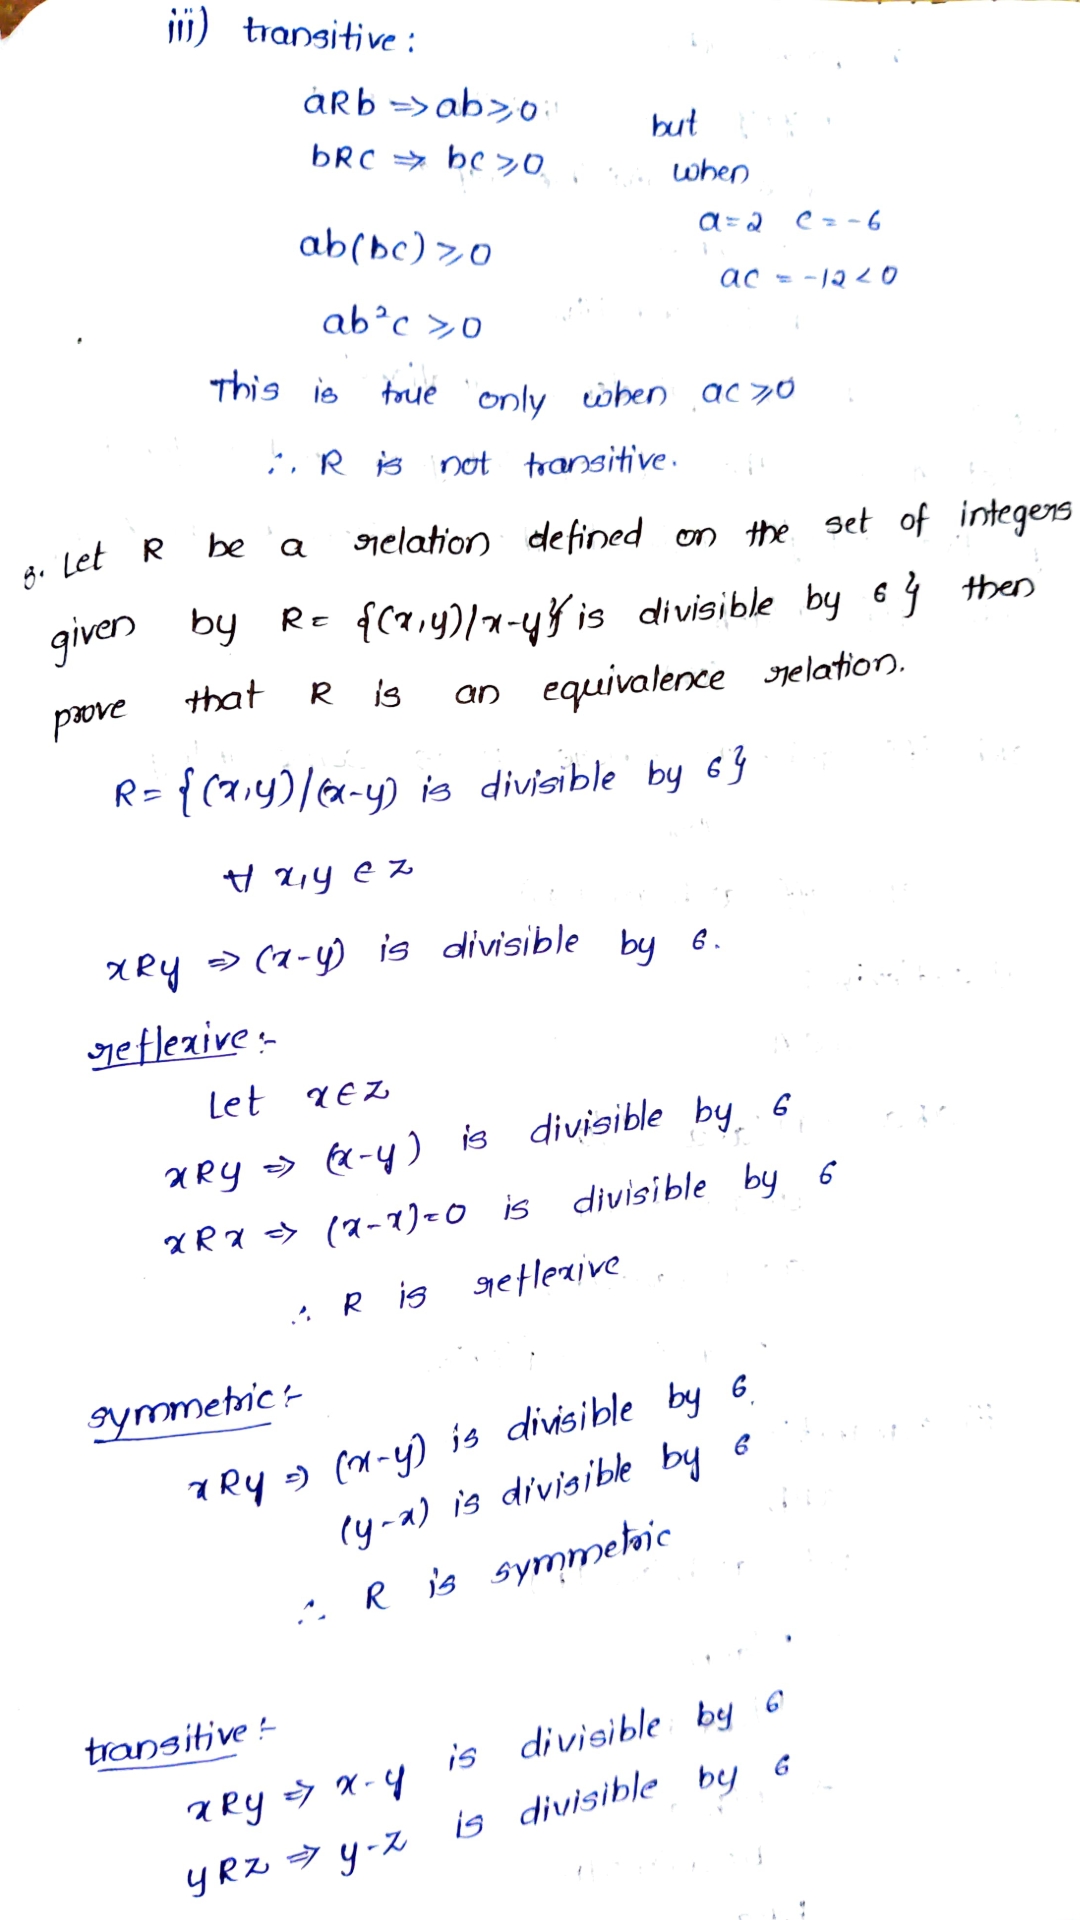 iii) transitive :
aRb ⇒ ab⩾0
bRc ⇒ bc⩾0
ab(bc)⩾0
ab²c ⩾0
but
when
a=2 c=-6
ac = -12<0
This is true only when ac⩾0
∴ R is not transitive.
3. Let R be a relation defined on the set of integers
given by R= {(x,y)/x-y} is divisible by 6} then
prove that R is an equivalence relation.
R= {(x,y)/(x-y) is divisible by 6}
∀ x,y ∈ z
xRy ⇒ (x-y) is divisible by 6.
reflexive:-
Let x∈z
xRy ⇒ (x-y) is divisible by 6
xRx ⇒ (x-x)=0 is divisible by 6
∴ R is reflexive
symmetric:-
xRy ⇒ (x-y) is divisible by 6.
(y-x) is divisible by 6
∴ R is symmetric
transitive:-
xRy ⇒ x-y is divisible by 6
yRz ⇒ y-z is divisible by 6